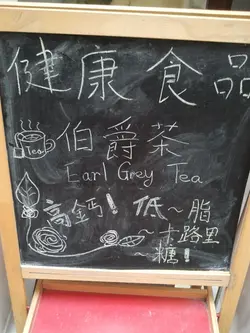 健康食品
Tea 伯爵茶
Earl Grey Tea
高鈣! 低~脂
~卡路里
~糖!